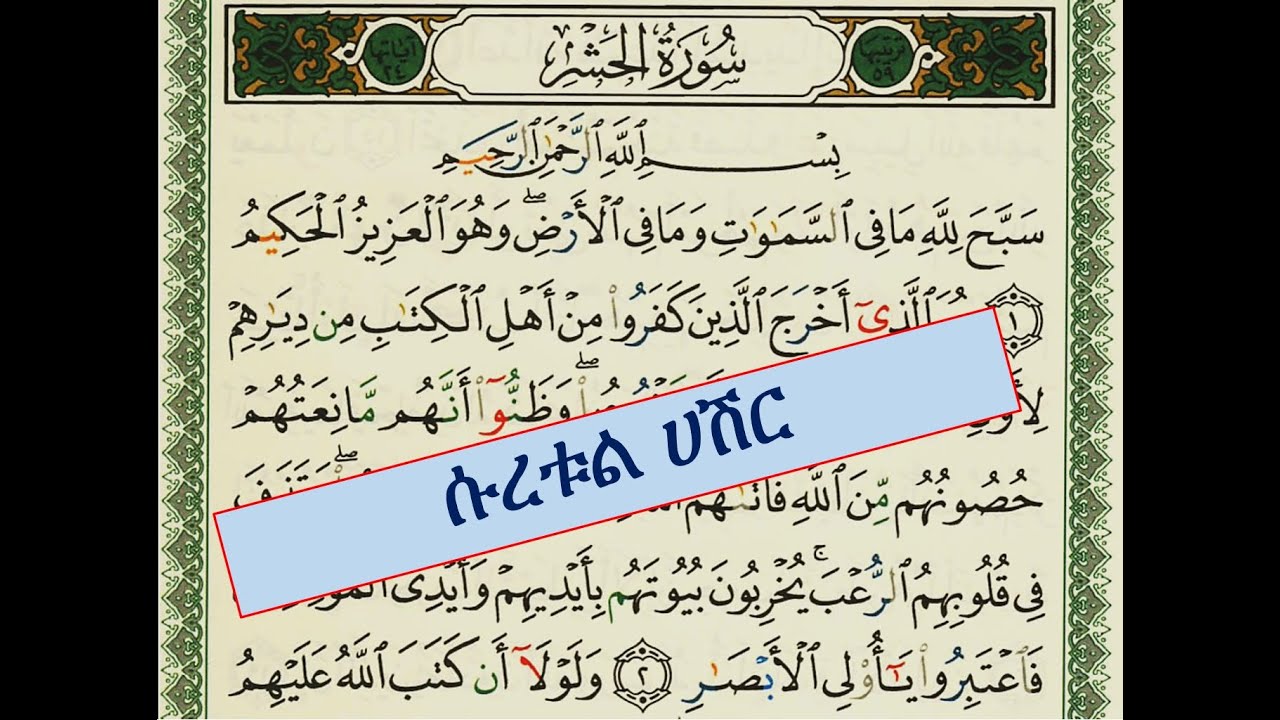 ترتيبها ٥٩ سُورَةُ الحَشْرِ آياتها ٢٤
بِسْمِ ٱللَّهِ ٱلرَّحْمَٰنِ ٱلرَّحِيمِ
سَبَّحَ لِلَّهِ مَا فِى ٱلسَّمَٰوَٰتِ وَمَا فِى ٱلْأَرْضِۖ وَهُوَ ٱلْعَزِيزُ ٱلْحَكِيمُ
١ ٱلَّذِىٓ أَخْرَجَ ٱلَّذِينَ كَفَرُوا۟ مِنْ أَهْلِ ٱلْكِتَٰبِ مِن دِيَٰرِهِمْ
وَظَنُّوٓا۟ أَنَّهُم مَّانِعَتُهُمْ
ሱረቱል ሀሽር
حُصُونُهُم مِّنَ ٱللَّهِ فَأَتَىٰهُمُ
فِى قُلُوبِهِمُ ٱلرُّعْبَۚ يُخْرِبُونَ بُيُوتَهُم بِأَيْدِيهِمْ وَأَيْدِى
فَٱعْتَبِرُوا۟ يَٰٓأُو۟لِى ٱلْأَبْصَٰرِ ٢ وَلَوْلَآ أَن كَتَبَ ٱللَّهُ عَلَيْهِمُ